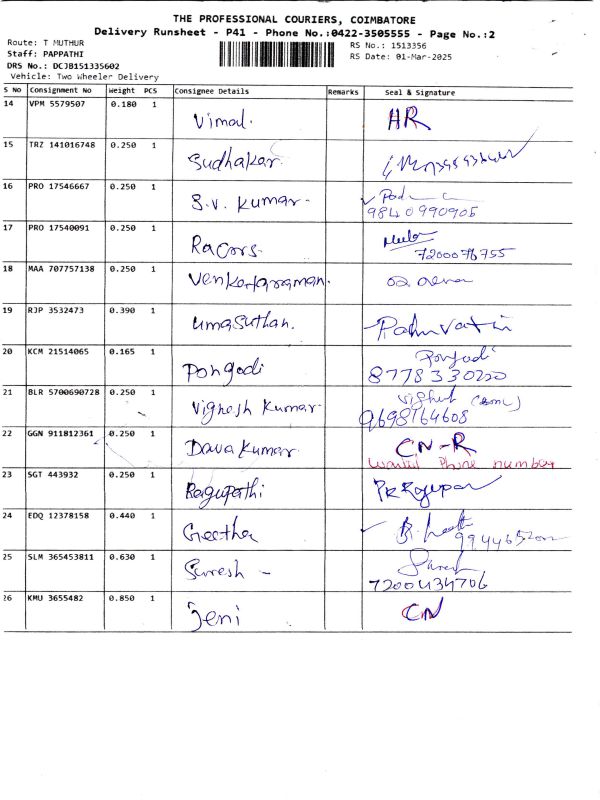 THE PROFESSIONAL COURIERS, COIMBATORE
Delivery Runsheet - P41 - Phone No.:0422-3505555 - Page No.:2
Route: T MUTHUR
Staff: PAPPATHI
DRS No.: DCJB151335602
Vehicle: Two Wheeler Delivery
RS No.: 1513356
RS Date: 01-Mar-2025
S No Consignment No Weight PCS Consignee Details Remarks Seal & Signature
14 VPM 5579507 0.180 1 Vimal. HR
15 TRZ 141016748 0.250 1 Sudhakar.
16 PRO 17546667 0.250 1 S.V. Kumar.
9840990905
17 PRO 17540091 0.250 1 Racors.
7200076755
18 MAA 707757138 0.250 1 Venkataraman.
19 RJP 3532473 0.390 1 Umasuthan.
20 KCM 21514065 0.165 1 Pongodi Pongodi
8778330220
21 BLR 5700690728 0.250 1 Vighesh Kumar.
9698164608
22 GGN 911812361 0.250 1 Dava Kumar. CN-R
Phone number
23 SGT 443932 0.250 1 Ragupathi
24 EDQ 12378158 0.440 1 Geetha
25 SLM 365453811 0.630 1 Suresh - Suresh
7200434706
26 KMU 3655482 0.850 1 Jeni CN